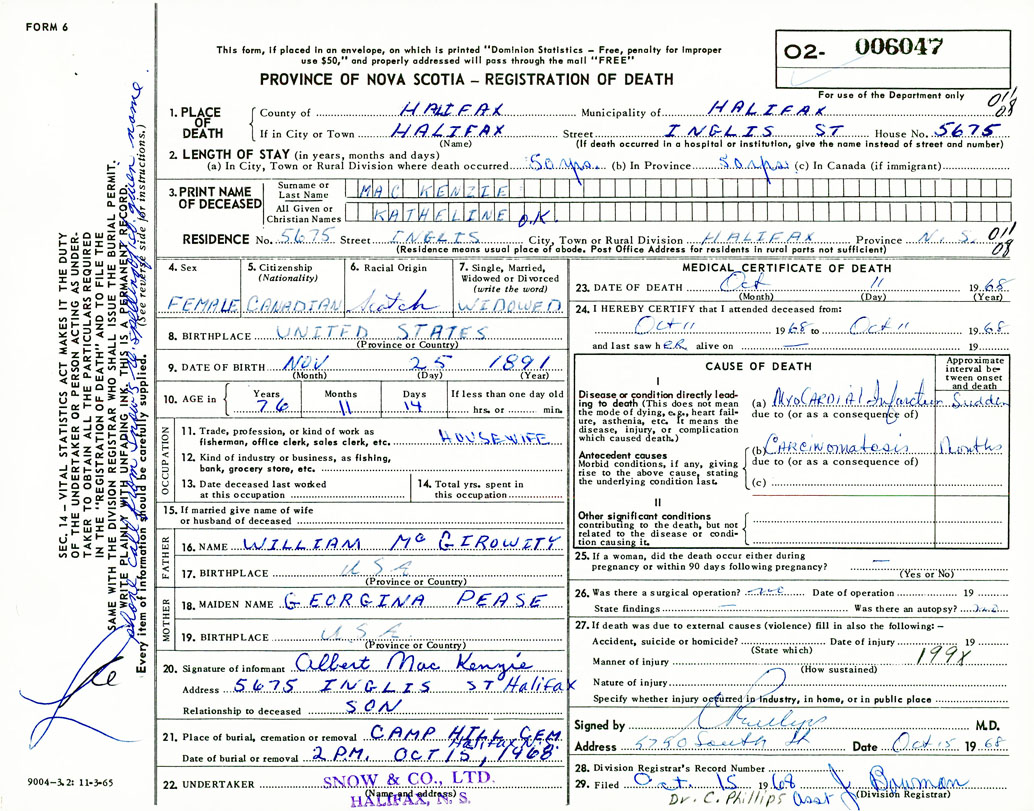 FORM 6
This form, if placed in an envelope, on which is printed "Dominion Statistics – Free, penalty for improper
use $50," and properly addressed will pass through the mail "FREE"
PROVINCE OF NOVA SCOTIA – REGISTRATION OF DEATH
02- 006047
For use of the Department only
011
08
1. PLACE OF DEATH
County of HALIFAX Municipality of HALIFAX
If in City or Town HALIFAX Street INGLIS ST House No. 5675
(Name) (If death occurred in a hospital or institution, give the name instead of street and number)
2. LENGTH OF STAY (in years, months and days)
(a) In City, Town or Rural Division where death occurred 50 yrs. (b) In Province 50 yrs (c) In Canada (if immigrant)
3. PRINT NAME OF DECEASED
Surname or Last Name MAC KENZIE
All Given or Christian Names KATHELINE O.K.
RESIDENCE No. 5675 Street INGLIS City, Town or Rural Division HALIFAX Province N. S. 011
08
(Residence means usual place of abode. Post Office Address for residents in rural parts not sufficient)
4. Sex
FEMALE
5. Citizenship (Nationality)
CANADIAN
6. Racial Origin
Scotch
7. Single, Married, Widowed or Divorced (write the word)
WIDOWED
8. BIRTHPLACE UNITED STATES
(Province or Country)
9. DATE OF BIRTH NOV 25 1891
(Month) (Day) (Year)
10. AGE in Years Months Days If less than one day old
76 11 14 hrs. or min.
OCCUPATION
11. Trade, profession, or kind of work as
fisherman, office clerk, sales clerk, etc. HOUSEWIFE
12. Kind of industry or business, as fishing,
bank, grocery store, etc.
13. Date deceased last worked
at this occupation
14. Total yrs. spent in
this occupation
15. If married give name of wife
or husband of deceased
FATHER
16. NAME WILLIAM Mc GIROWITY
17. BIRTHPLACE U S A
(Province or Country)
MOTHER
18. MAIDEN NAME GEORGINA PEASE
19. BIRTHPLACE U S A
(Province or Country)
20. Signature of informant Albert Mac Kenzie
Address 5675 INGLIS ST Halifax
Relationship to deceased SON
21. Place of burial, cremation or removal CAMP HILL CEM
Halifax N.S.
Date of burial or removal 2 P.M. OCT 15, 1968
22. UNDERTAKER SNOW & CO., LTD.
(Name and address)
HALIFAX, N. S.
MEDICAL CERTIFICATE OF DEATH
23. DATE OF DEATH Oct 11 1968
(Month) (Day) (Year)
24. I HEREBY CERTIFY that I attended deceased from:
Oct 11 1968 to Oct 11 1968
and last saw hER alive on — 19
CAUSE OF DEATH
Approximate interval between onset and death
I
Disease or condition directly leading to death (This does not mean the mode of dying, e.g., heart failure, asthenia, etc. It means the disease, injury, or complication which caused death.)
(a) Myocardial Infarction Sudden
due to (or as a consequence of)
Antecedent causes
Morbid conditions, if any, giving rise to the above cause, stating the underlying condition last.
(b) Carcinomatosis Months
due to (or as a consequence of)
(c)
II
Other significant conditions
contributing to the death, but not related to the disease or condition causing it.
25. If a woman, did the death occur either during
pregnancy or within 90 days following pregnancy? —
(Yes or No)
26. Was there a surgical operation? no Date of operation 19
State findings — Was there an autopsy? no
27. If death was due to external causes (violence) fill in also the following: –
Accident, suicide or homicide? Date of injury 19
(State which)
199X
Manner of injury
(How sustained)
Nature of injury
Specify whether injury occurred in Industry, in home, or in public place
Signed by C Phillips M.D.
Address 5790 South St Date Oct 15 1968
28. Division Registrar's Record Number
29. Filed Oct. 15 1968 J. Bauman
(Division Registrar)
Dr. C. Phillips Asst
SEC. 14 – VITAL STATISTICS ACT MAKES IT THE DUTY
OF THE UNDERTAKER OR PERSON ACTING AS UNDER-
TAKER TO OBTAIN ALL THE PARTICULARS REQUIRED
IN THE "REGISTRATION OF DEATH" AND TO FILE THE
SAME WITH THE DIVISION REGISTRAR WHO SHALL ISSUE THE BURIAL PERMIT.
WRITE PLAINLY WITH UNFADING INK. THIS IS A PERMANENT RECORD.
Every item of information should be carefully supplied. (See reverse side for instructions.)
phone call from Snow's spelling of given name
9004-3.2: 11-3-65